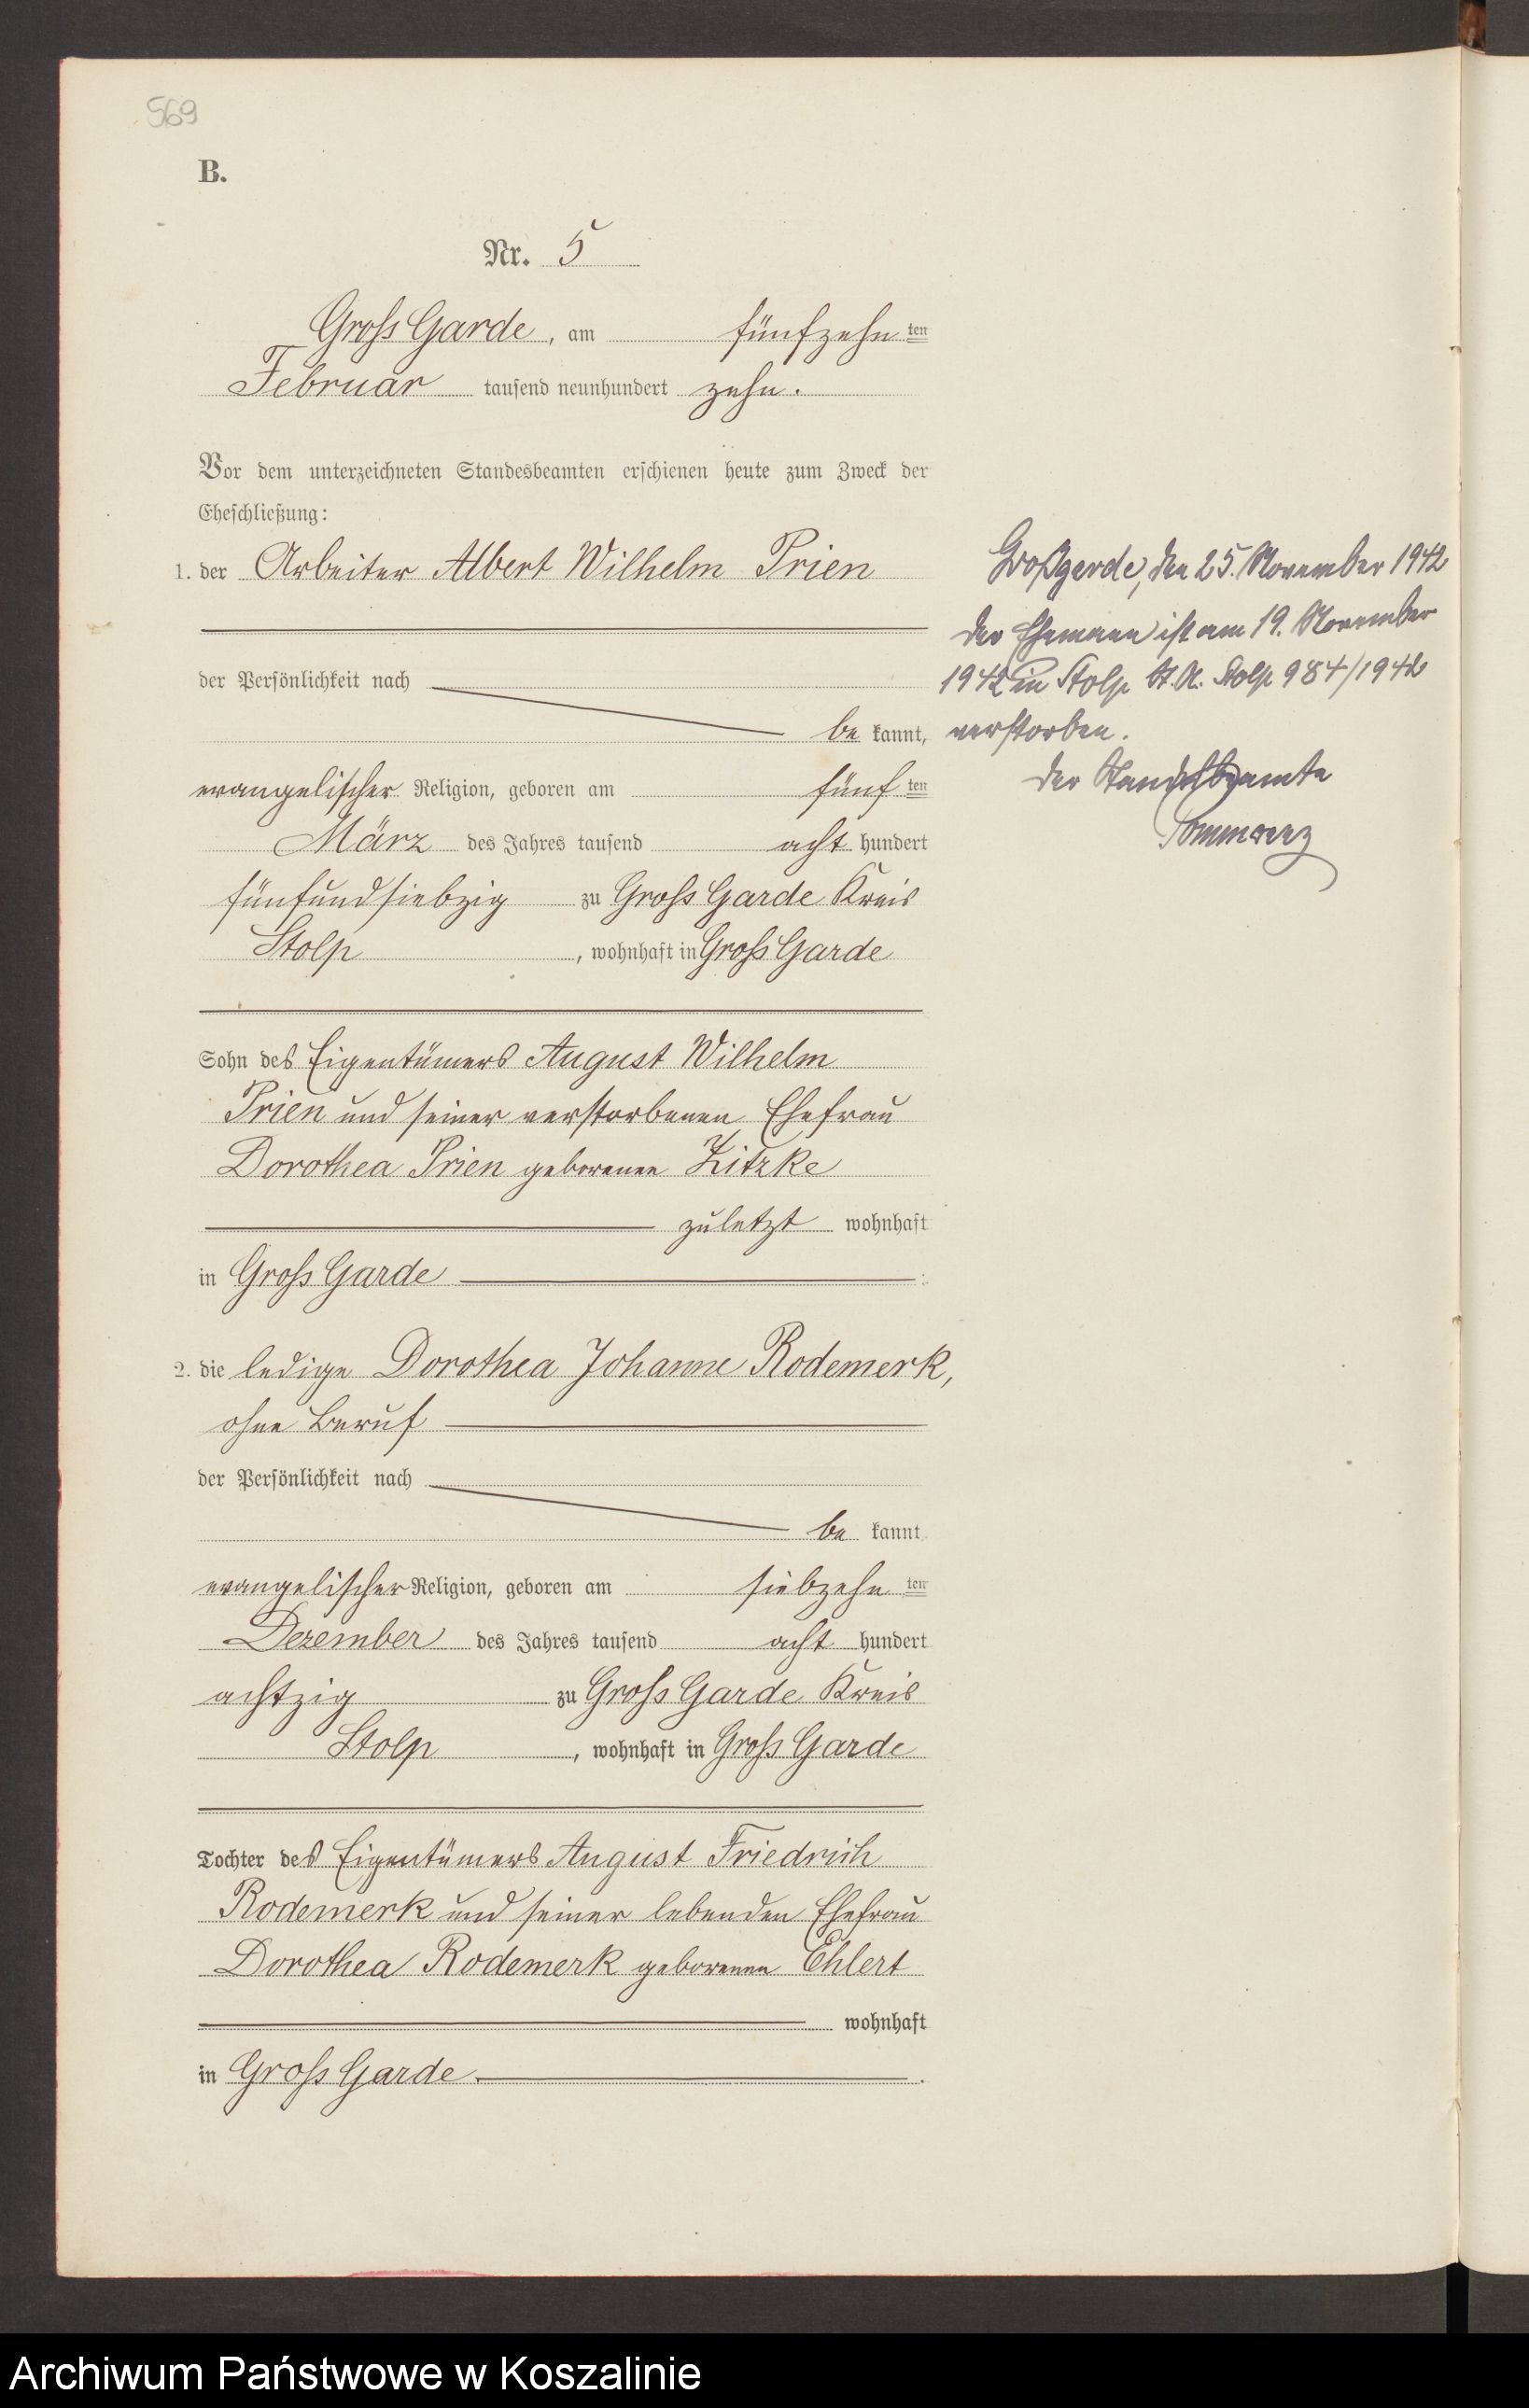 569
B.
Nr. 5
Gross Garde, am fünfzehn ten
Februar tausend neunhundert zehn.
Vor dem unterzeichneten Standesbeamten erschienen heute zum Zweck der
Eheschließung:
1. der Arbeiter Albert Wilhelm Prien
der Persönlichkeit nach
be kannt,
evangelischer Religion, geboren am fünf ten
März des Jahres tausend acht hundert
fünfundsiebzig zu Gross Garde Kreis
Stolp, wohnhaft in Gross Garde
Sohn des Eigentümers August Wilhelm
Prien und seiner verstorbenen Ehefrau
Dorothea Prien geborenen Zitzke
zuletzt wohnhaft
in Gross Garde
2. die ledige Dorothea Johanne Rodemerk,
ohne Beruf
der Persönlichkeit nach
be kannt
evangelischer Religion, geboren am siebzehn ten
Dezember des Jahres tausend acht hundert
achtzig zu Gross Garde Kreis
Stolp, wohnhaft in Gross Garde
Tochter des Eigentümers August Friedrich
Rodemerk und seiner lebenden Ehefrau
Dorothea Rodemerk geborenen Ehlert
wohnhaft
in Gross Garde.
Großgarde, den 25. November 1942
Der Ehemann ist am 19. November
1942 in Stolp St. A. Stolp 984/1942
verstorben.
Der Standesbeamte
Archiwum Państwowe w Koszalinie